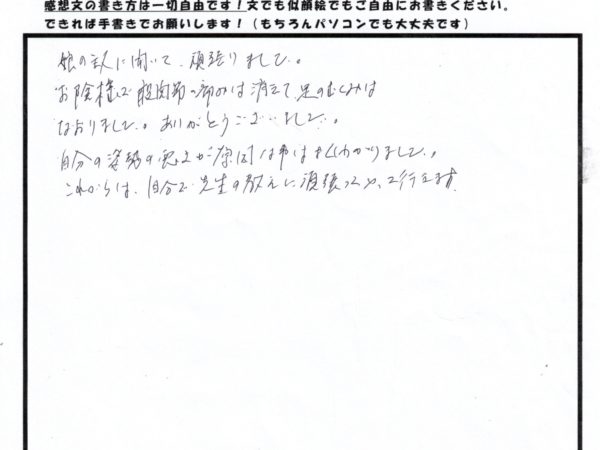 感想文の書き方は一切自由です！文でも似顔絵でもご自由にお書きください。
できれば手書きでお願いします！（もちろんパソコンでも大丈夫です）
娘の為に聞いて、頑張りました。
お陰様で股関節の痛みは消えて足のむくみは
なおりました。ありがとうございました。
自分の姿勢の悪さが原因は事はよくわかりました。
これからは、自分で先生の教えに頑張ってやって行きます。